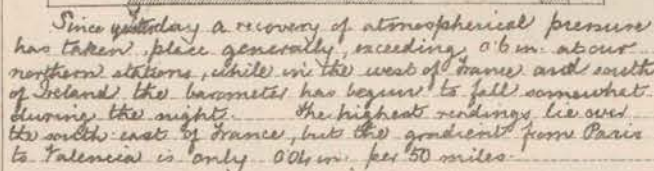 Since yesterday a recovery of atmospherical pressure
has taken place generally, exceeding 0.6 in. at our
northern stations, while in the west of France and south
of Ireland the barometer has begun to fall somewhat
during the night. The highest readings lie over
the south east of France, but the gradient from Paris
to Valencia is only 0.04 in. per 50 miles.